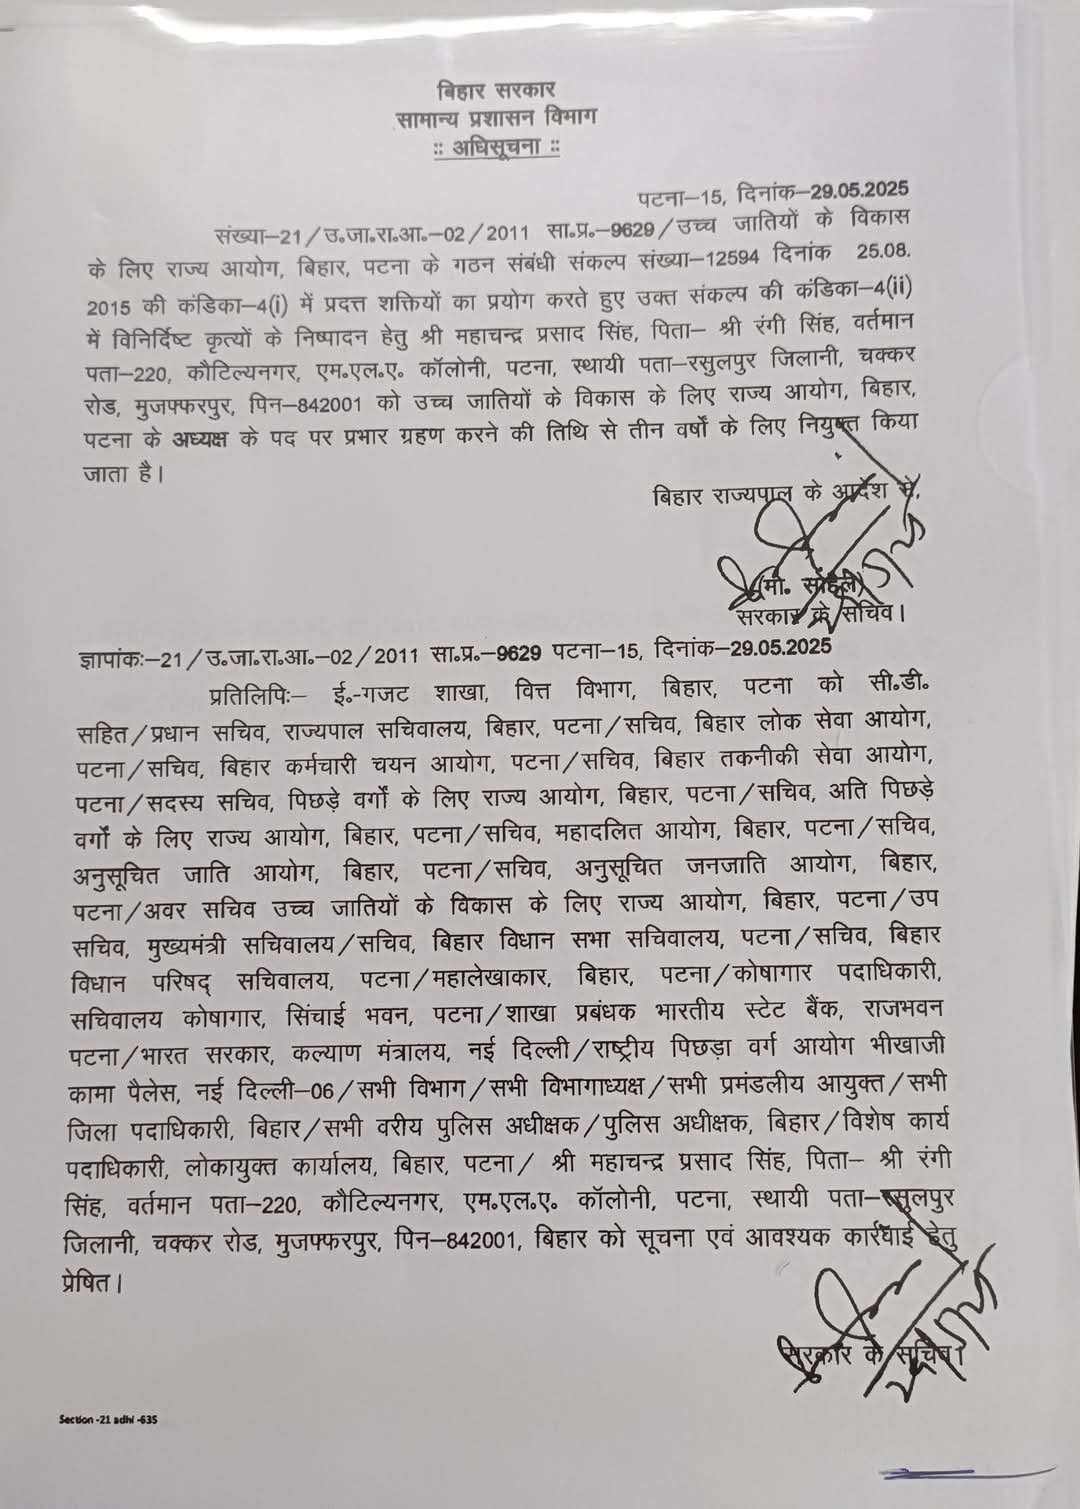 बिहार सरकार
सामान्य प्रशासन विभाग
:: अधिसूचना ::
पटना–15, दिनांक–29.05.2025
संख्या–21/उ.जा.रा.आ.–02/2011 सा.प्र.–9629/उच्च जातियों के विकास
के लिए राज्य आयोग, बिहार, पटना के गठन संबंधी संकल्प संख्या–12594 दिनांक 25.08.
2015 की कंडिका–4(i) में प्रदत्त शक्तियों का प्रयोग करते हुए उक्त संकल्प की कंडिका–4(ii)
में विनिर्दिष्ट कृत्यों के निष्पादन हेतु श्री महाचन्द्र प्रसाद सिंह, पिता– श्री रंगी सिंह, वर्तमान
पता–220, कौटिल्यनगर, एम.एल.ए. कॉलोनी, पटना, स्थायी पता–रसुलपुर जिलानी, चक्कर
रोड, मुजफ्फरपुर, पिन–842001 को उच्च जातियों के विकास के लिए राज्य आयोग, बिहार,
पटना के अध्यक्ष के पद पर प्रभार ग्रहण करने की तिथि से तीन वर्षों के लिए नियुक्त किया
जाता है।
बिहार राज्यपाल के आदेश से,
(मो. सोहैल)
सरकार के सचिव।
ज्ञापांकः–21/उ.जा.रा.आ.–02/2011 सा.प्र.–9629 पटना–15, दिनांक–29.05.2025
प्रतिलिपिः– ई.-गजट शाखा, वित्त विभाग, बिहार, पटना को सी.डी.
सहित/प्रधान सचिव, राज्यपाल सचिवालय, बिहार, पटना/सचिव, बिहार लोक सेवा आयोग,
पटना/सचिव, बिहार कर्मचारी चयन आयोग, पटना/सचिव, बिहार तकनीकी सेवा आयोग,
पटना/सदस्य सचिव, पिछड़े वर्गों के लिए राज्य आयोग, बिहार, पटना/सचिव, अति पिछड़े
वर्गों के लिए राज्य आयोग, बिहार, पटना/सचिव, महादलित आयोग, बिहार, पटना/सचिव,
अनुसूचित जाति आयोग, बिहार, पटना/सचिव, अनुसूचित जनजाति आयोग, बिहार,
पटना/अवर सचिव उच्च जातियों के विकास के लिए राज्य आयोग, बिहार, पटना/उप
सचिव, मुख्यमंत्री सचिवालय/सचिव, बिहार विधान सभा सचिवालय, पटना/सचिव, बिहार
विधान परिषद् सचिवालय, पटना/महालेखाकार, बिहार, पटना/कोषागार पदाधिकारी,
सचिवालय कोषागार, सिंचाई भवन, पटना/शाखा प्रबंधक भारतीय स्टेट बैंक, राजभवन
पटना/भारत सरकार, कल्याण मंत्रालय, नई दिल्ली/राष्ट्रीय पिछड़ा वर्ग आयोग भीखाजी
कामा पैलेस, नई दिल्ली–06/सभी विभाग/सभी विभागाध्यक्ष/सभी प्रमंडलीय आयुक्त/सभी
जिला पदाधिकारी, बिहार/सभी वरीय पुलिस अधीक्षक/पुलिस अधीक्षक, बिहार/विशेष कार्य
पदाधिकारी, लोकायुक्त कार्यालय, बिहार, पटना/ श्री महाचन्द्र प्रसाद सिंह, पिता– श्री रंगी
सिंह, वर्तमान पता–220, कौटिल्यनगर, एम.एल.ए. कॉलोनी, पटना, स्थायी पता–रसुलपुर
जिलानी, चक्कर रोड, मुजफ्फरपुर, पिन–842001, बिहार को सूचना एवं आवश्यक कार्रवाई हेतु
प्रेषित।
सरकार के सचिव।
Section -21 adhi -635